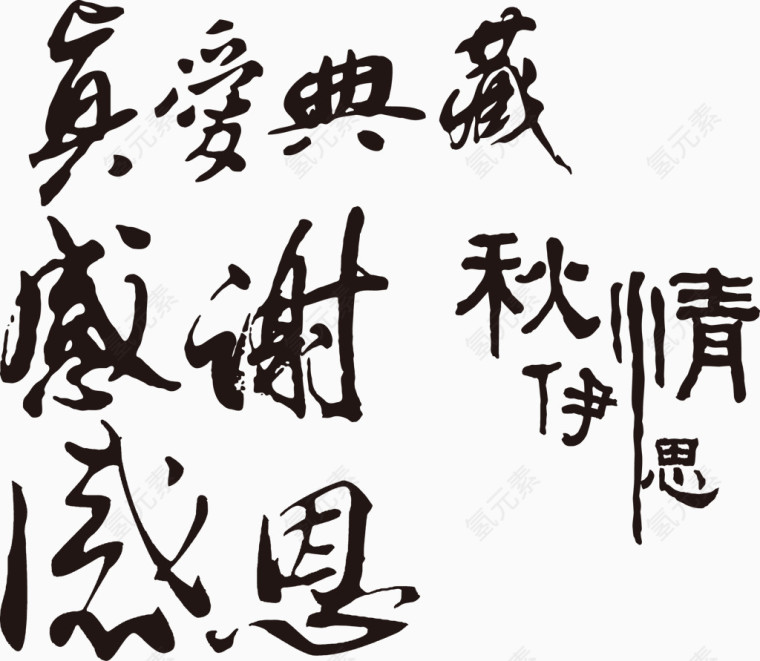 真愛典藏
感谢
秋伊情思
感恩
氢元素